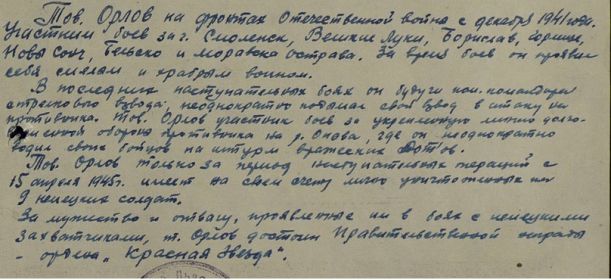 Тов. Орлов на фронтах Отечественной войны с декабря 1941 года.
Участник боев за г. Смоленск, Великие Луки, Борислав, Горлице,
Новы Сонч, Бельско и Моравска Острава. За время боев он проявил
себя смелым и храбрым воином.
В последних наступательных боях он будучи пом. командира
стрелкового взвода, неоднократно поднимал свой взвод в атаку на
противника. Тов. Орлов участник боев за укрепленную линию долго-
временной обороны противника на р. Опова, где он неоднократно
водил своих бойцов на штурм вражеских Дотов.
Тов. Орлов только за период наступательных операций с
15 апреля 1945г. имеет на своем счету лично уничтоженных им
9 немецких солдат.
За мужество и отвагу, проявленные им в боях с немецкими
захватчиками, т. Орлов достоин Правительственной награды
- ордена „Красная Звезда".